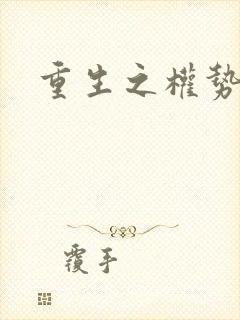 重生之權勢
覆手